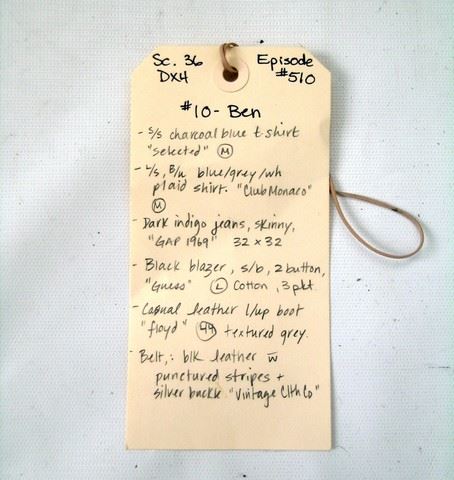 Sc. 36 Episode
DX4 #510
#10 - Ben
- S/s charcoal blue t-shirt
"selected" M
- L/s, B/u blue/grey/wh
plaid shirt. "Club Monaco"
M
- Dark indigo jeans, skinny,
"GAP 1969" 32 x 32
- Black blazer, s/b, 2 button,
"Guess" L Cotton, 3 pkt.
- Casual leather l/up boot
"floyd" 44 textured grey.
- Belt,: blk leather w̅
punctured stripes +
silver buckle "Vintage Clth Co"